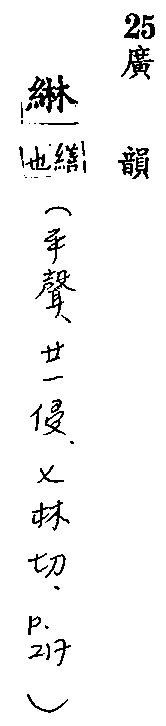 25 廣韻
綝
繕也
(平聲、廿一侵、乂林切、p.217)